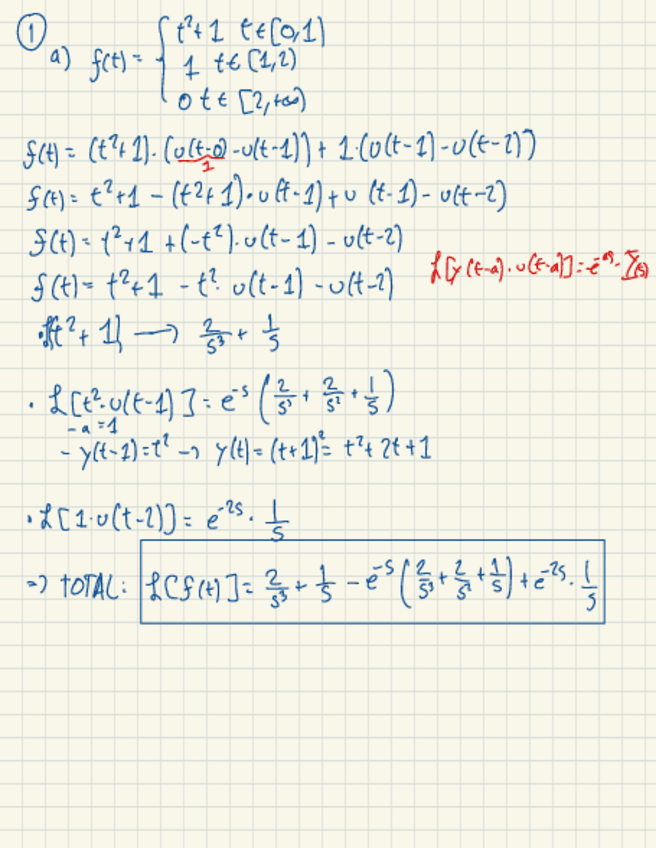 ①
a) f(t) = { t²+1 t∈[0,1)
1 t∈[1,2)
0 t∈[2,+∞)
f(t) = (t²+1)·(u(t-0)-u(t-1))+1·(u(t-1)-u(t-2))
1
f(t) = t²+1 - (t²+1)·u(t-1)+u(t-1)-u(t-2)
f(t) = t²+1 +(-t²)·u(t-1) - u(t-2)
f(t) = t²+1 - t²·u(t-1) - u(t-2)
ℒ[y(t-a)·u(t-a)] = e^-as·Y(s)
·ℒ[t²+1] → 2/s³ + 1/s
· ℒ[t²·u(t-1)] = e^-s (2/s³ + 2/s² + 1/s)
- a = 1
- y(t-1)=t² → y(t) = (t+1)² = t²+2t+1
· ℒ[1·u(t-2)] = e^-2s · 1/s
=> TOTAL: ℒ[f(t)] = 2/s³ + 1/s - e^-s (2/s³ + 2/s² + 1/s) + e^-2s · 1/s